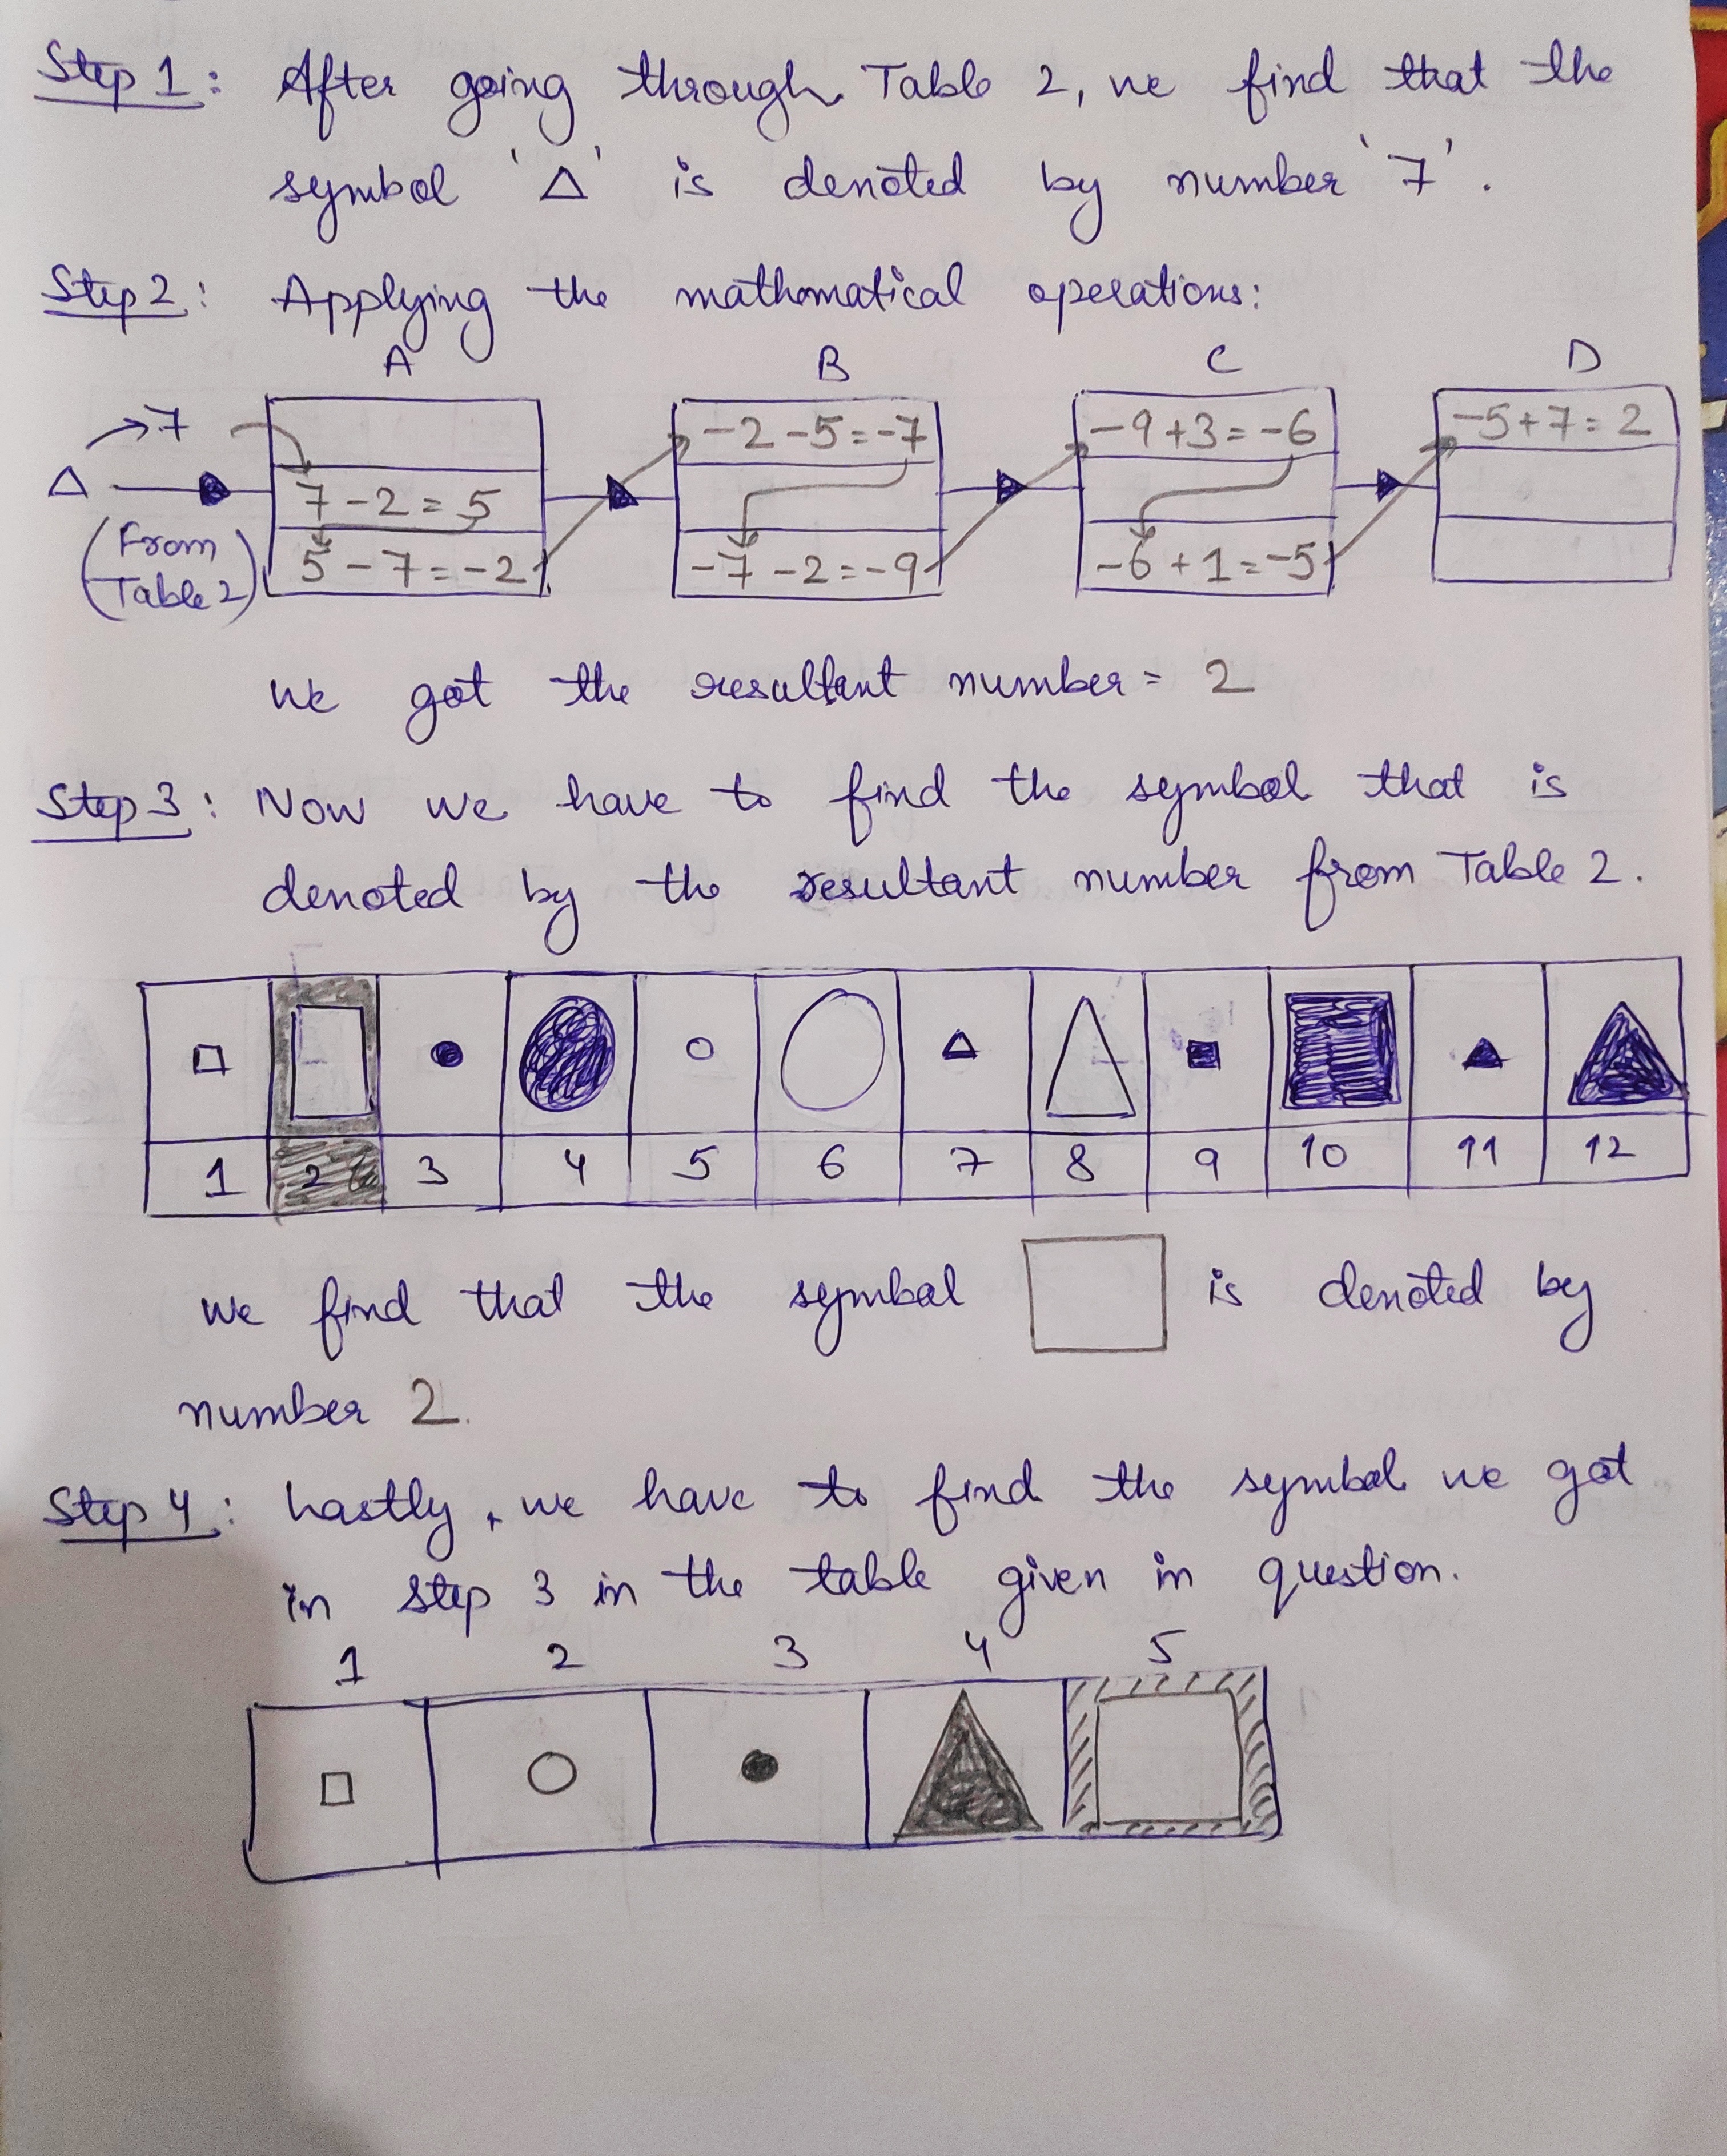 Step 1: After going through Table 2, we find that the
symbol '△' is denoted by number '7'.
Step 2: Applying the mathematical operations:
A B C D
7 -2-5=-7 -9+3=-6 -5+7=2
△ 7-2=5
(From Table 2) 5-7=-2 -7-2=-9 -6+1=-5
we got the resultant number = 2
Step 3: Now we have to find the symbol that is
denoted by the resultant number from Table 2.
1 2 3 4 5 6 7 8 9 10 11 12
we find that the symbol □ is denoted by
number 2.
Step 4: Lastly, we have to find the symbol we got
in step 3 in the table given in question.
1 2 3 4 5